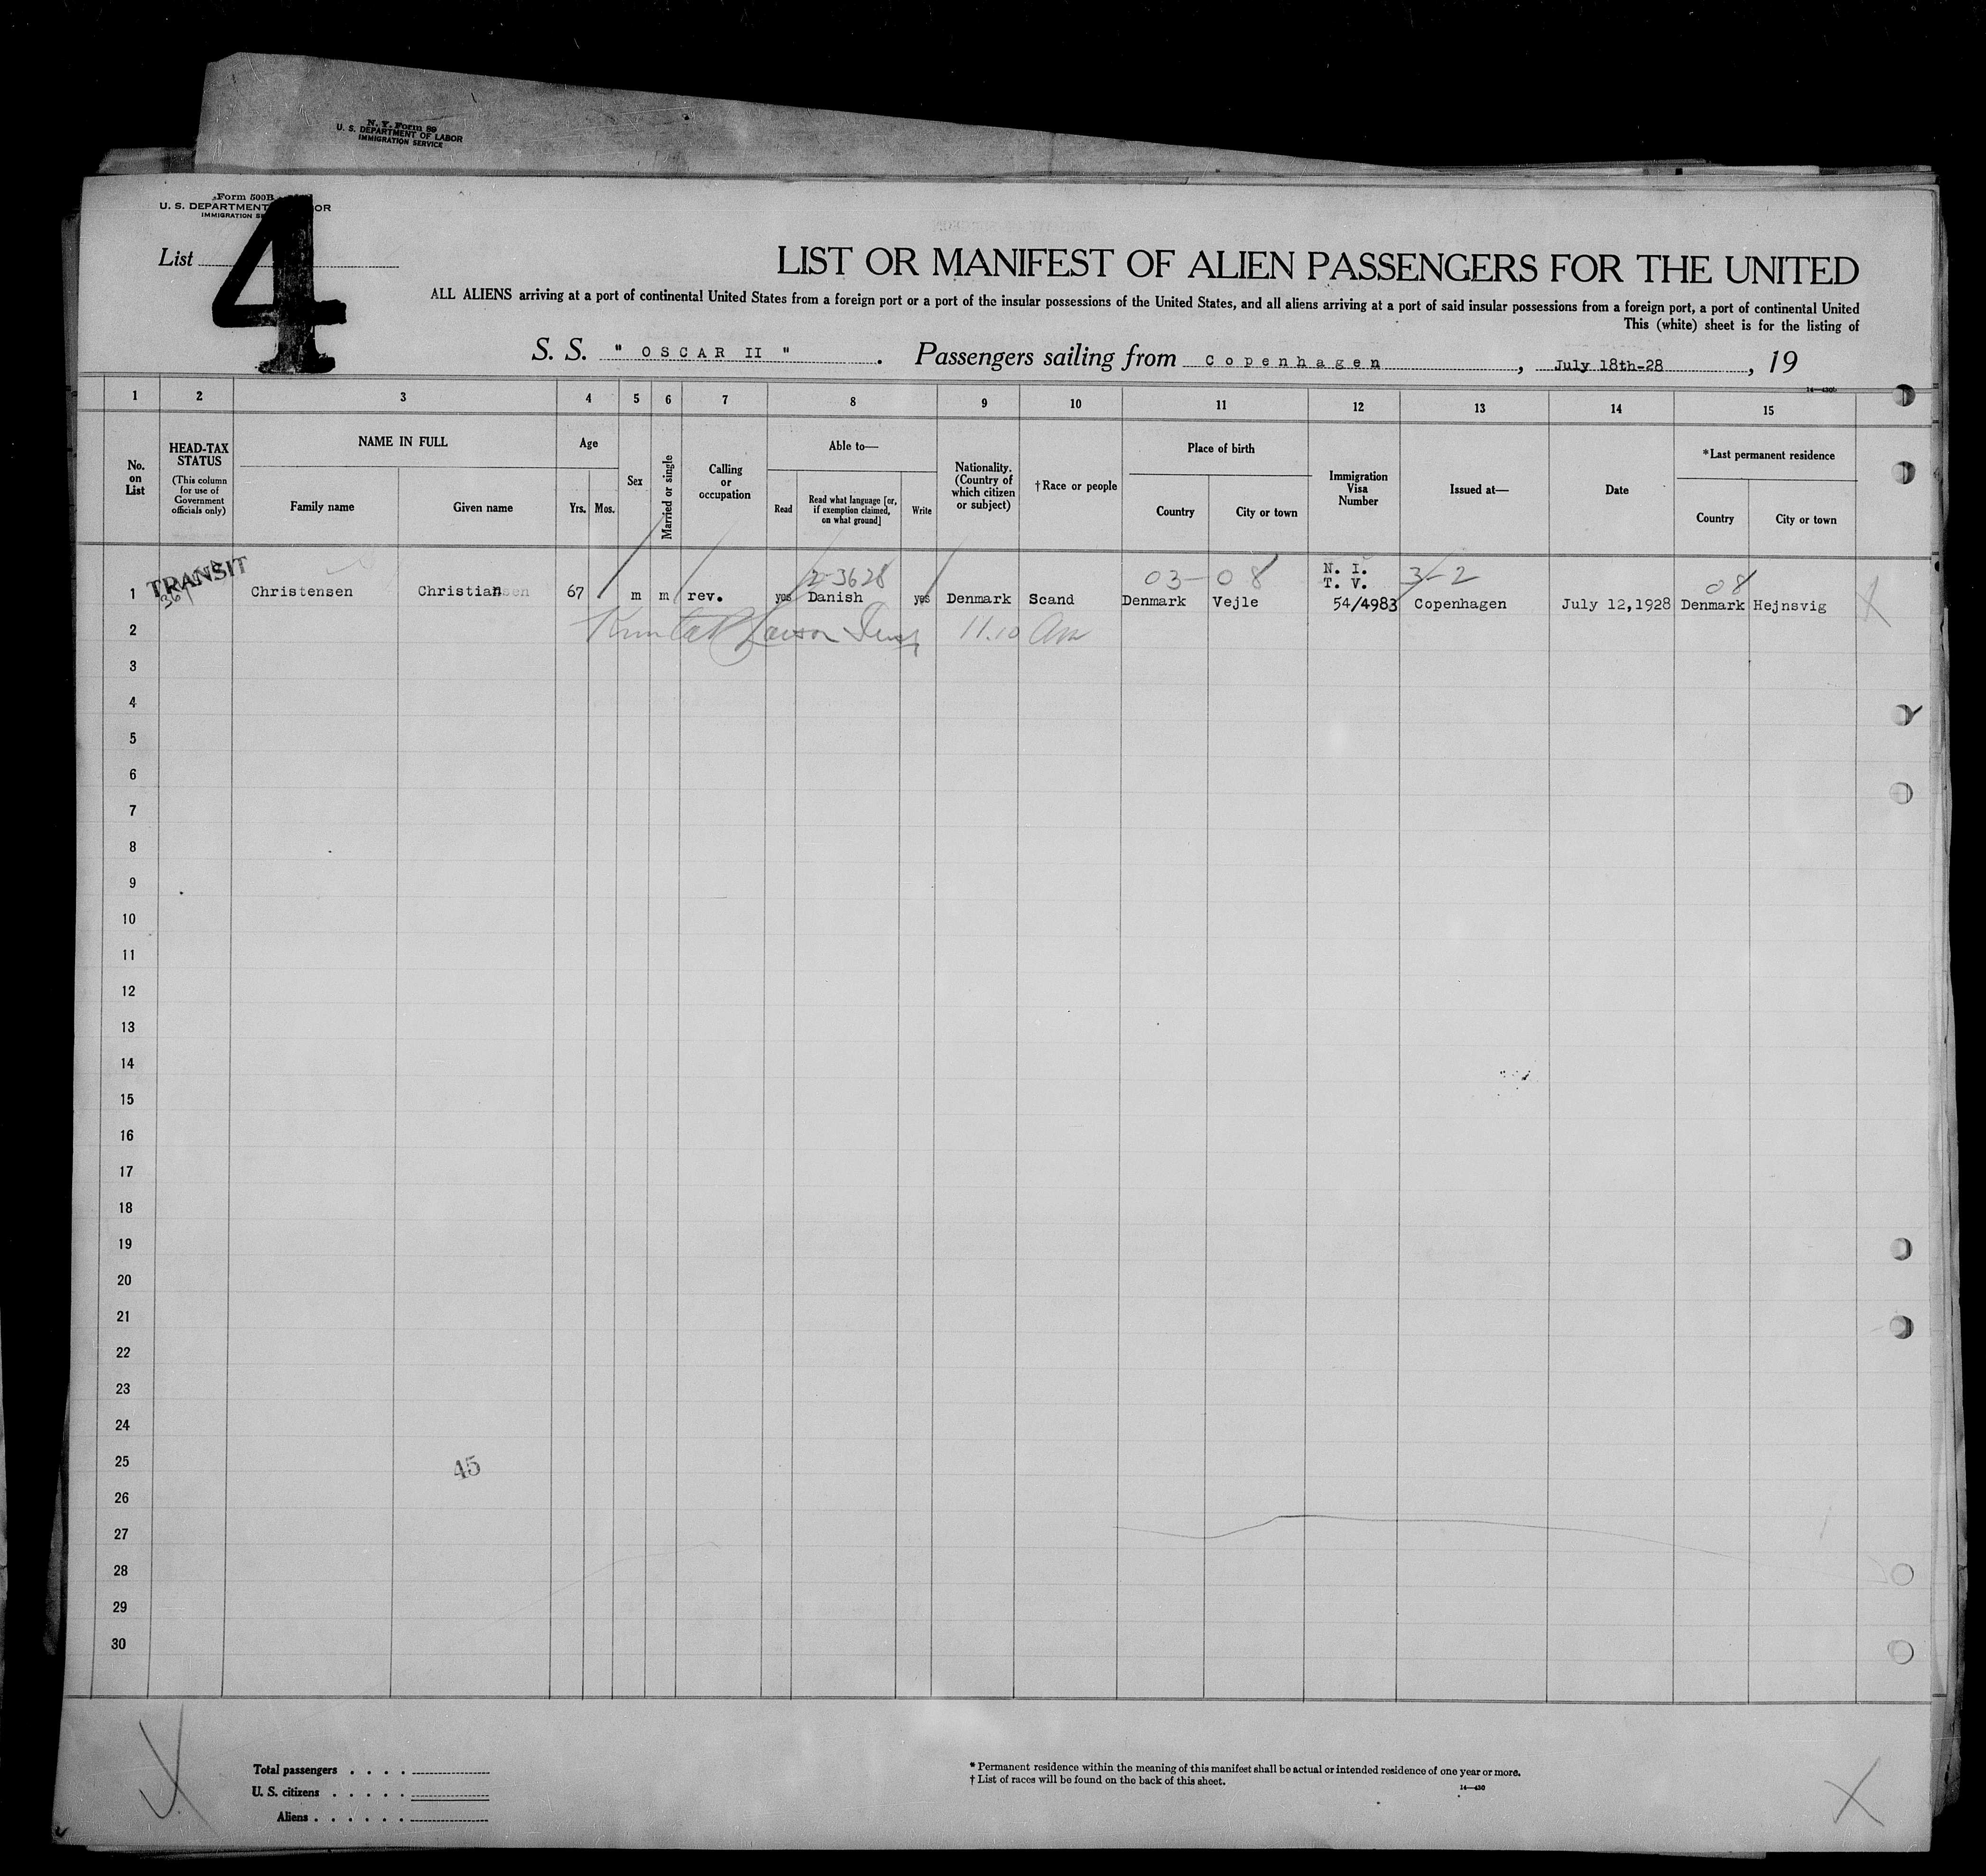 N. Y. Form 89
U. S. DEPARTMENT OF LABOR
IMMIGRATION SERVICE
Form 500B
U. S. DEPARTMENT OR
IMMIGRATION SE
List
4
LIST OR MANIFEST OF ALIEN PASSENGERS FOR THE UNITED
ALL ALIENS arriving at a port of continental United States from a foreign port or a port of the insular possessions of the United States, and all aliens arriving at a port of said insular possessions from a foreign port, a port of continental United
This (white) sheet is for the listing of
S. S. " OSCAR II ". Passengers sailing from Copenhagen, July 18th-28, 19
14—430b
1 2 3 4 5 6 7 8 9 10 11 12 13 14 15
No. on List
HEAD-TAX STATUS
(This column for use of Government officials only)
NAME IN FULL
Family name
Given name
Age
Yrs.
Mos.
Sex
Married or single
Calling or occupation
Able to—
Read
Read what language [or, if exemption claimed, on what ground]
Write
Nationality. (Country of which citizen or subject)
†Race or people
Place of birth
Country
City or town
Immigration Visa Number
Issued at—
Date
*Last permanent residence
Country
City or town
TRANSIT
2-3628 03-08 N. I. 3-2 08
T. V.
1 Christensen Christian 67 m m rev. yes Danish yes Denmark Scand Denmark Vejle 54/4983 Copenhagen July 12,1928 Denmark Hejnsvig
2 11.10 am
3
4
5
6
7
8
9
10
11
12
13
14
15
16
17
18
19
20
21
22
23
24
25
45
26
27
28
29
30
Total passengers . . . .
U. S. citizens . . . . .
Aliens . . . . . .
* Permanent residence within the meaning of this manifest shall be actual or intended residence of one year or more.
† List of races will be found on the back of this sheet.
14—430